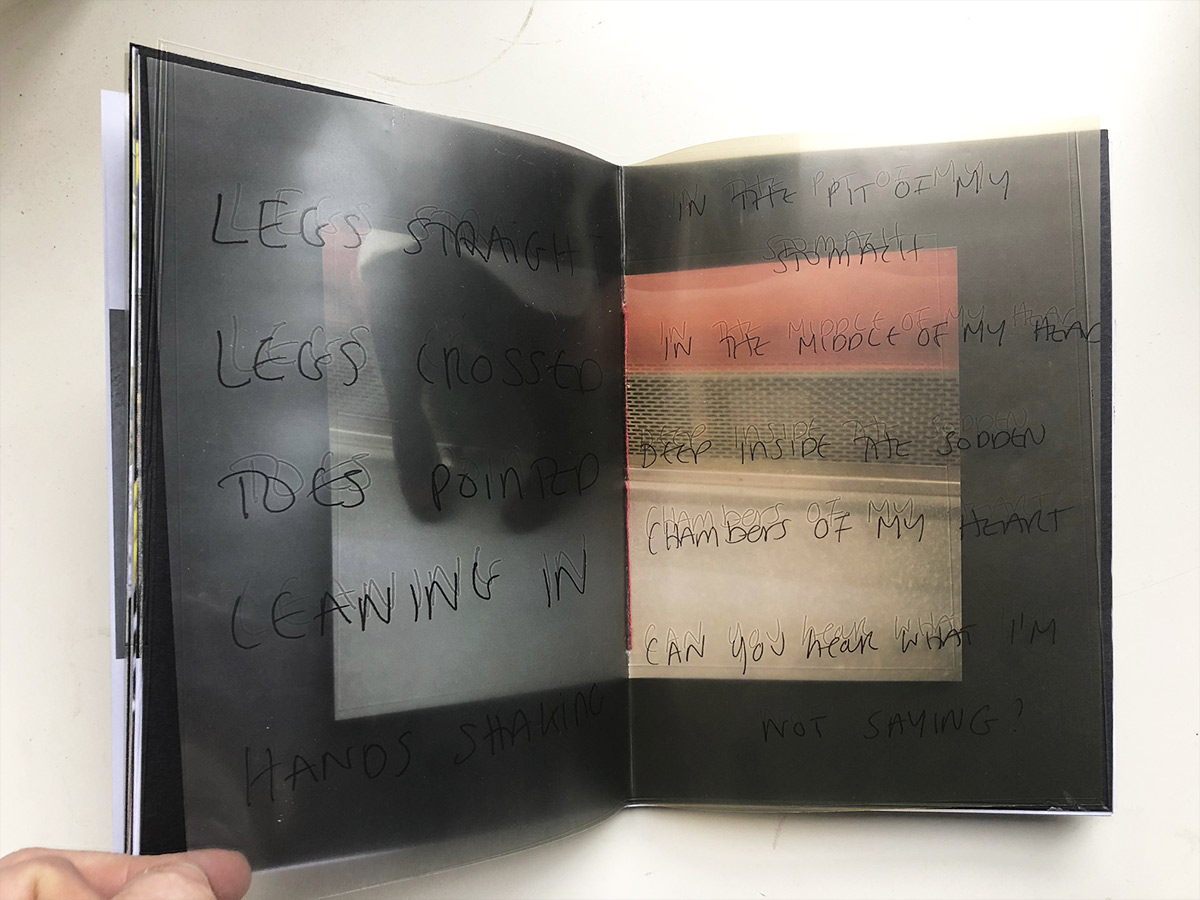 LEGS STRAIGHT
LEGS CROSSED
TOES POINTED
LEANING IN
HANDS SHAKING
IN THE PIT OF MY
STOMACH
IN THE MIDDLE OF MY HEAD
DEEP INSIDE THE SODDEN
CHAMBERS OF MY HEART
CAN YOU HEAR WHAT I'M
NOT SAYING?